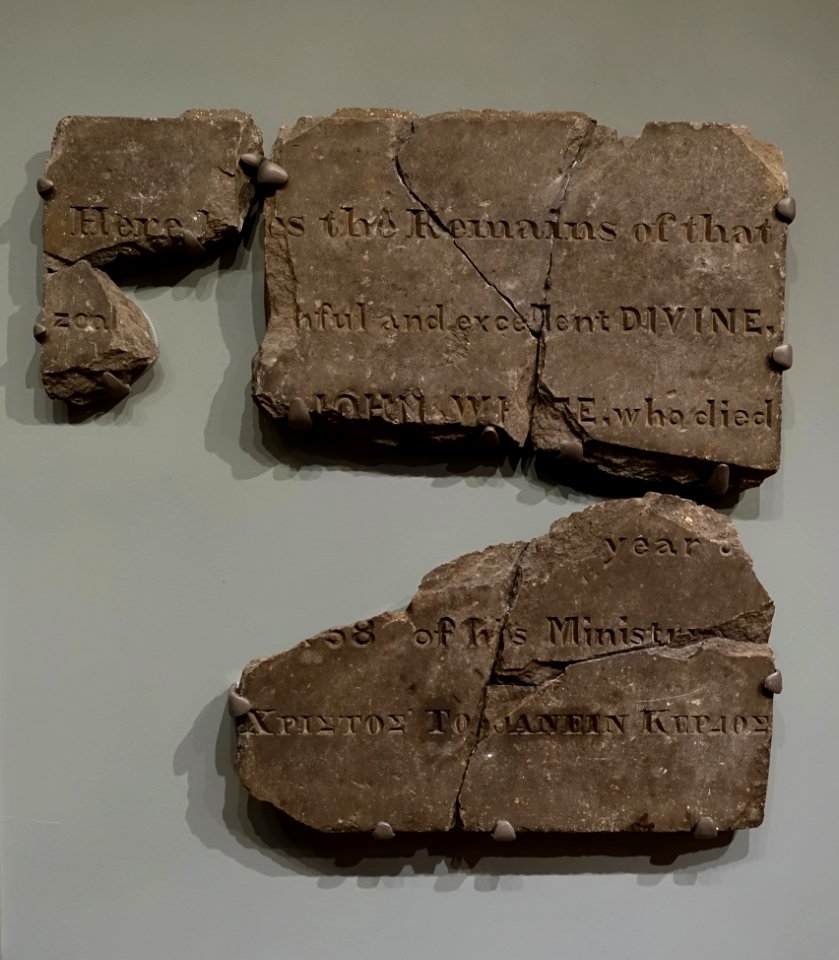 Here l es the Remains of that
zeal hful and excellent DIVINE,
JOHN WH E, who died
year o
58 of his Ministry
ΧΡΙΣΤΟΣ ΤΟ ΑΝΕΙΝ ΚΕΡΔΟΣ